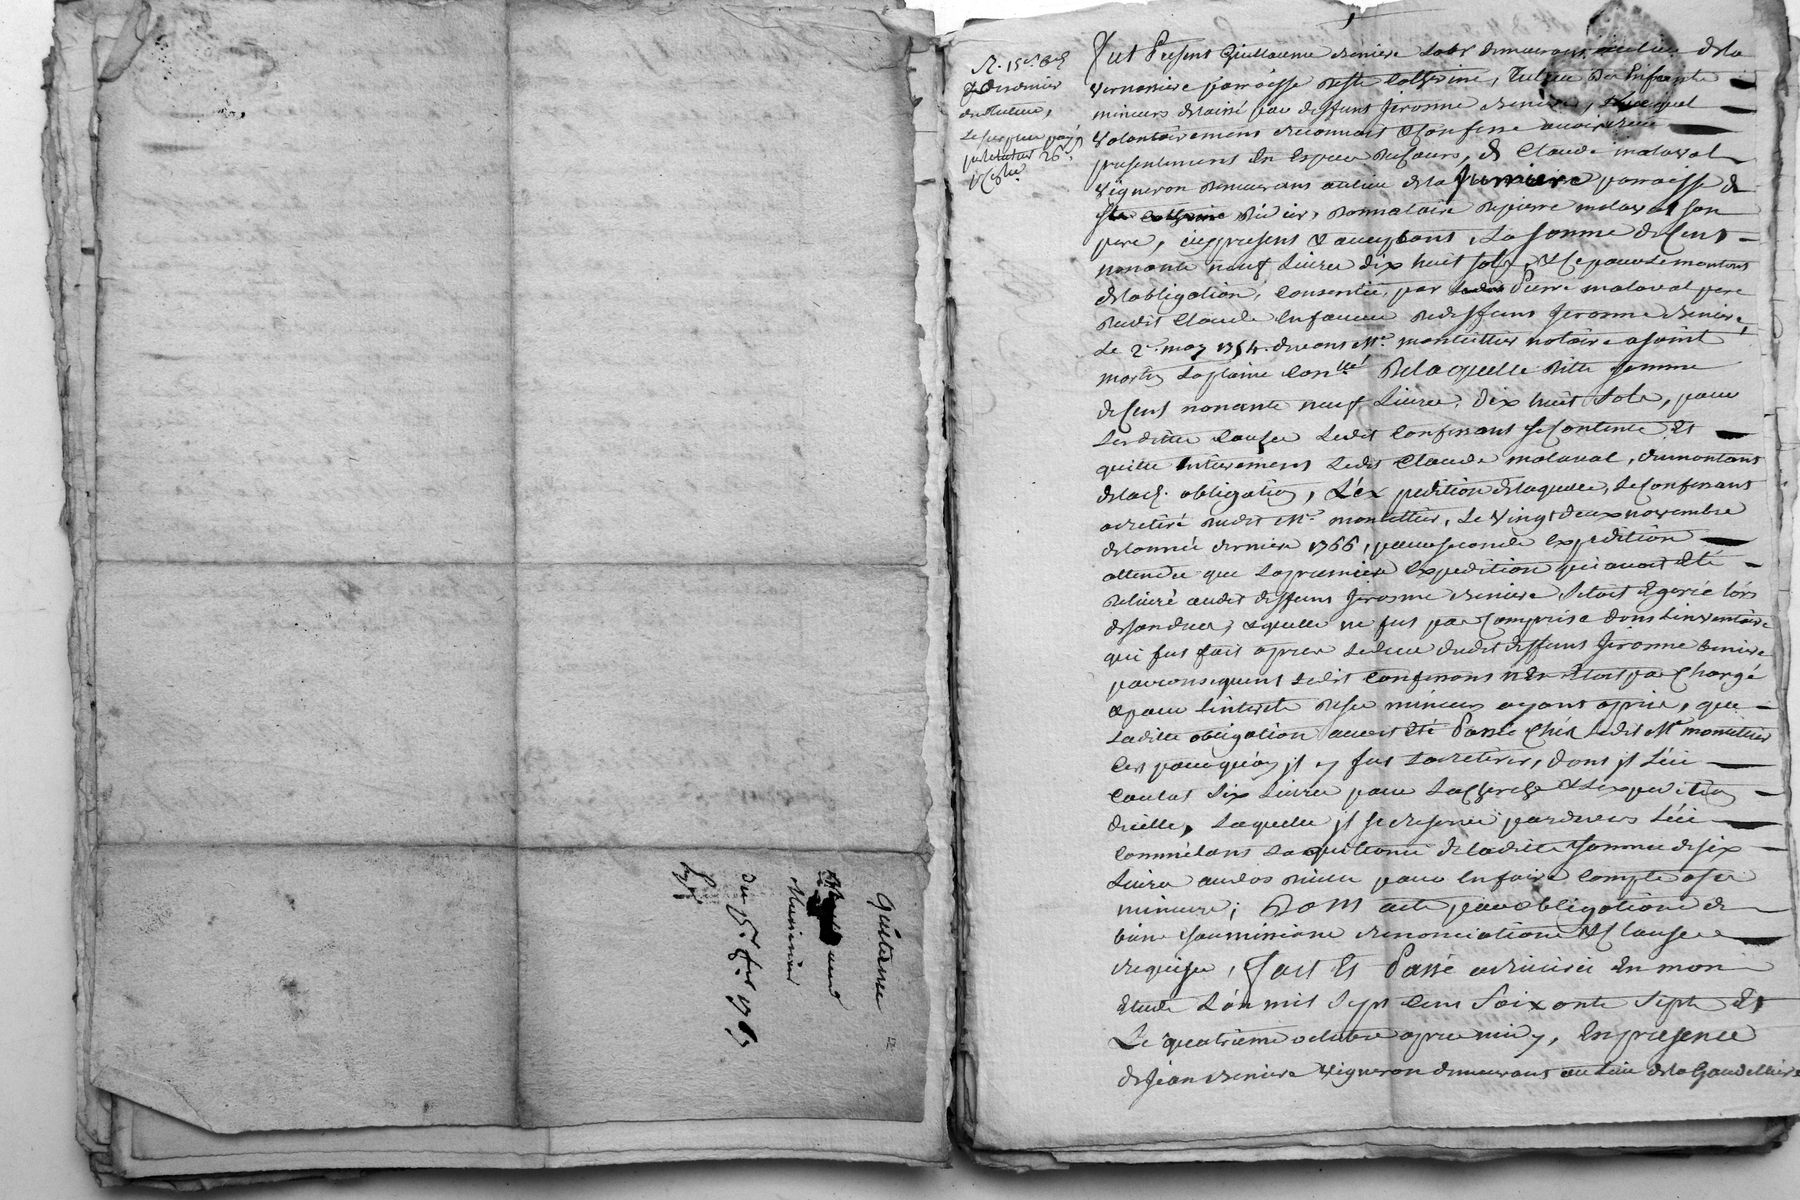 quittance
du 4e 8bre 1767
Fut Present Guillaume reniere labr demeurant au lieu dela
parroisse de Ste Catherine, Tuteur des Enfants
mineurs delaisé par deffunt Jerosme reniere, Lequel
Volontairement reconnait & Confesse avoir receu
presentement en espece de Cours, de Claude malaval
Vigneron demeurant au lieu dela Jurarie parroisse de
Ste Catherine donnataire de pierre malaval son
pere, icy present & acceptant, La somme de Cent
nonante neuf Livres dix huit sols, & Ce pour le montant
del'obligation, Consentie, par Pierre malaval pere
dudit Claude en faveur dudit deffunt Jerosme reniere,
Le 2e may 1754. devant Me monteillier notaire a saint
martin La plaine Con.llé De laquelle ditte somme
de Cent nonante neuf Livres, dix huit Sols, pour
Les dittes Causes Ledit Confessant se Contente Et
quitte entierement Ledit Claude malaval, du montant
de lad. obligation, L'expedition delaquelle, Le Confessant
a retiré dudit Me monteillier, Le vingt deux novembre
de l'année derniere 1766, pour seconde expedition
attendu que La premiere expedition qui avoit Eté
delivré audit deffunt Jerosme reniere s'etoit Egarée lors
de son deces, & qu'elle ne fut pas Comprise dans L'inventaire
qui fut fait apres Le deces dudit deffunt Jerosme reniere
par consequent Ledit Confessant n'en Etoit pas Chargé
& pour l'interets de ses mineurs ayant apris, que
Laditte obligation avoit Eté Passé Chés Ledit Me monteillier
C'est pourquoy il y fut La retirer, dont il Luy
Couta Six Livres pour La Cherche & L'expedition
d'icelle, Laquelle il se reserve
La quittance de laditte somme de six
Livres au dos d'icelle pour en faire Compte a ses
mineurs; Dont acte par obligations de
biens soumissions renonciations & Clauses
requises, Fait Et Passé en mon
Etude L'an mil sept cent soixante sept Et
Le quatrieme octobre apres midy, En presence
de Jean reniere Vigneron demeurant au lieu dela Gaudilliere